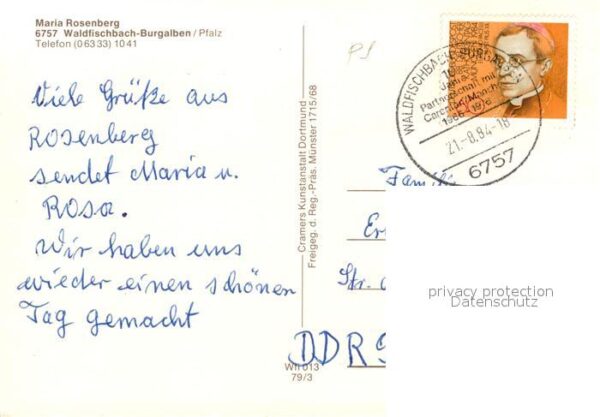 Maria Rosenberg
6757 Waldfischbach-Burgalben / Pfalz
Telefon (0 63 33) 10 41
P1
Viele Grüße aus
Rosenberg
sendet Maria u.
Rosa.
Wir haben uns
wieder einen schönen
Tag gemacht
Cramers Kunstanstalt Dortmund
Freigeg. d. Reg.-Präs. Münster 1715/68
Wfl 013
79/3
WALDFISCHBACH-BURGALBEN
10
Jahre
Partnerschaft mit
21.-8.84-18
6757
Famili
Str.
DDR
privacy protection
Datenschutz